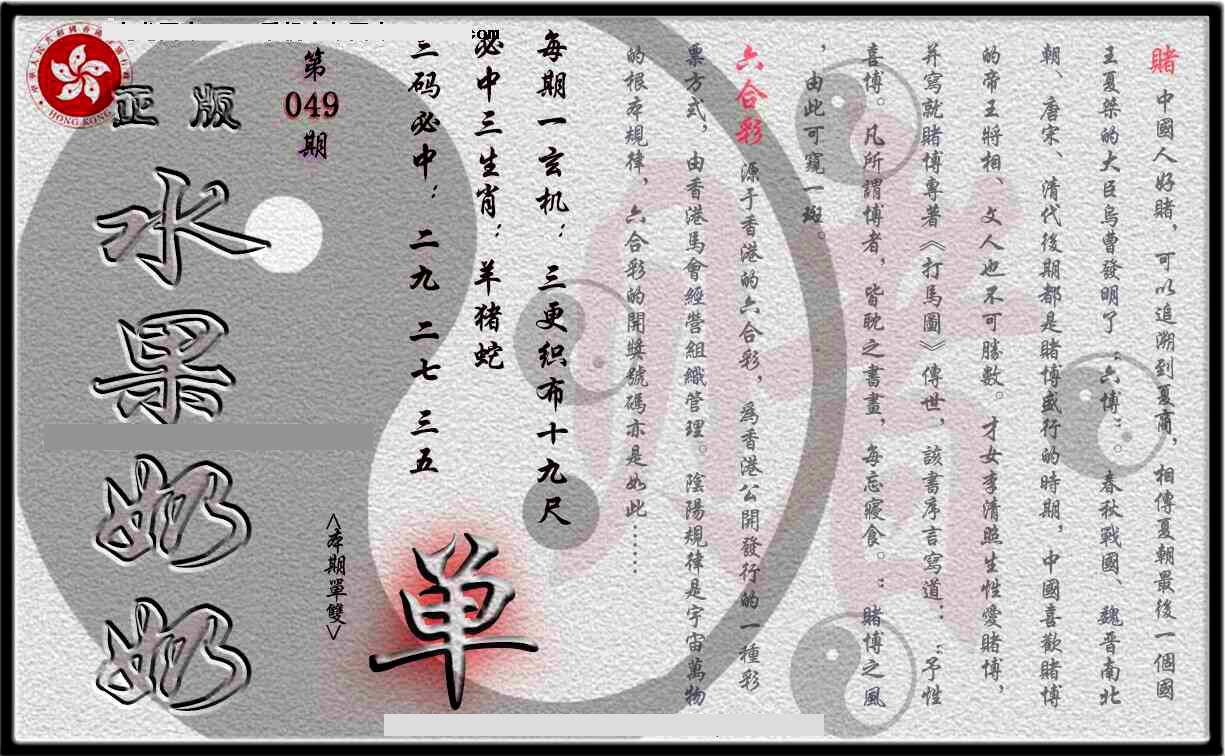 賭 中國人好賭，可以追溯到夏商，相傳夏朝最後一個國
王夏桀的大臣烏曹發明了“六博”。春秋戰國、魏晉南北
朝、唐宋、清代後期都是賭博盛行的時期，中國喜歡賭博
的帝王將相、文人也不可勝數。才女李清照生性愛賭博，
并寫就賭博專著《打馬圖》傳世，該書序言寫道：“予性
喜博。凡所謂博者，皆耽之晝晝，每忘寢食。”賭博之風
，由此可窺一斑。
六合彩 源于香港的六合彩，爲香港公開發行的一種彩
票方式，由香港馬會經營組織管理。陰陽規律是宇宙萬物
的根本規律，六合彩的開獎號碼亦是如此……
每期一玄机：三更织布十九尺
必中三生肖：羊猪蛇
三码必中：二九 二七 三五
第
049
期
正版
水果奶奶
<本期單雙>
单
HONG KONG
com